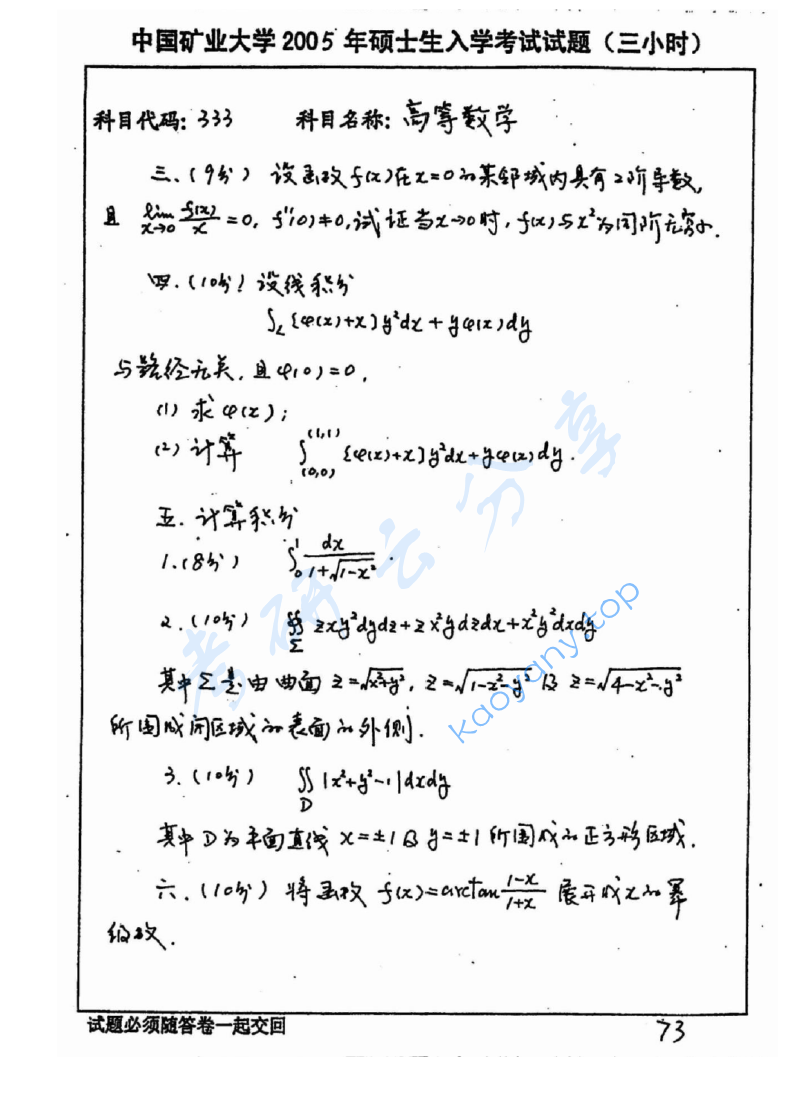 中国矿业大学2005年硕士生入学考试试题（三小时）
科目代码：333 科目名称：高等数学
三、（9分）设函数f(x)在x=0的某邻域内具有2阶导数，
且 lim_{x→0} f(x)/x = 0, f''(0)≠0, 试证当x→0时，f(x)与x²为同阶无穷小.
四.（10分）设线积分
∫_L [φ(x)+x]y²dx + yφ(x)dy
与路径无关，且φ(0)=0，
(1) 求φ(x)；
(2) 计算 ∫_{(0,0)}^{(1,1)} [φ(x)+x]y²dx+yφ(x)dy.
五. 计算积分
1.（8分） ∫_0^1 dx/(1+√(1-x²)).
2.（10分） ∯_Σ zxy²dydz+zx²ydzdx+x²y²dxdy
其中Σ是由曲面 z=√(x²+y²), z=√(1-x²-y²) 及 z=√(4-x²-y²)
所围成闭区域的表面的外侧.
3.（10分） ∬_D |x²+y²-1|dxdy
其中D为平面直线 x=±1及y=±1所围成的正方形区域.
六.（10分）将函数 f(x)=arctan (1-x)/(1+x) 展开成x的幂
级数.
试题必须随答卷一起交回
73
考研云分享
kaoyany.top